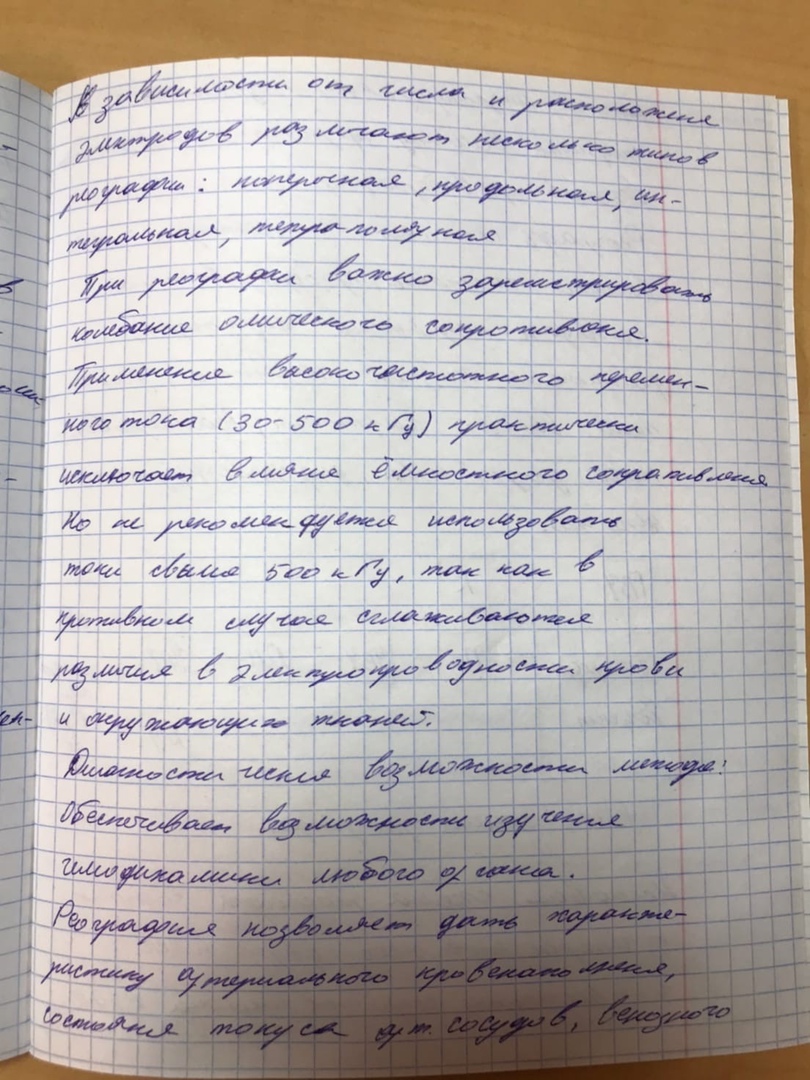 В зависимости от числа и расположения
электродов различают несколько типов
реографии: поперечная, продольная, ин-
тегральная, тетраполярная
При реографии важно зарегистрировать
колебание омического сопротивления.
Применение высокочастотного перемен-
ного тока (30-500 кГц) практически
исключает влияние ёмкостного сопративления
Но не рекомендуется использовать
токи свыше 500 кГц, так как в
противном случае сглаживаются
различия в электропроводности крови
и окружающих тканей.
Диагностические возможности метода:
Обеспечивает возможности изучения
гемодинамики любого органа.
Реография позволяет дать характе-
ристику артериального кровенаполнения,
состояния тонуса арт. сосудов, венозного